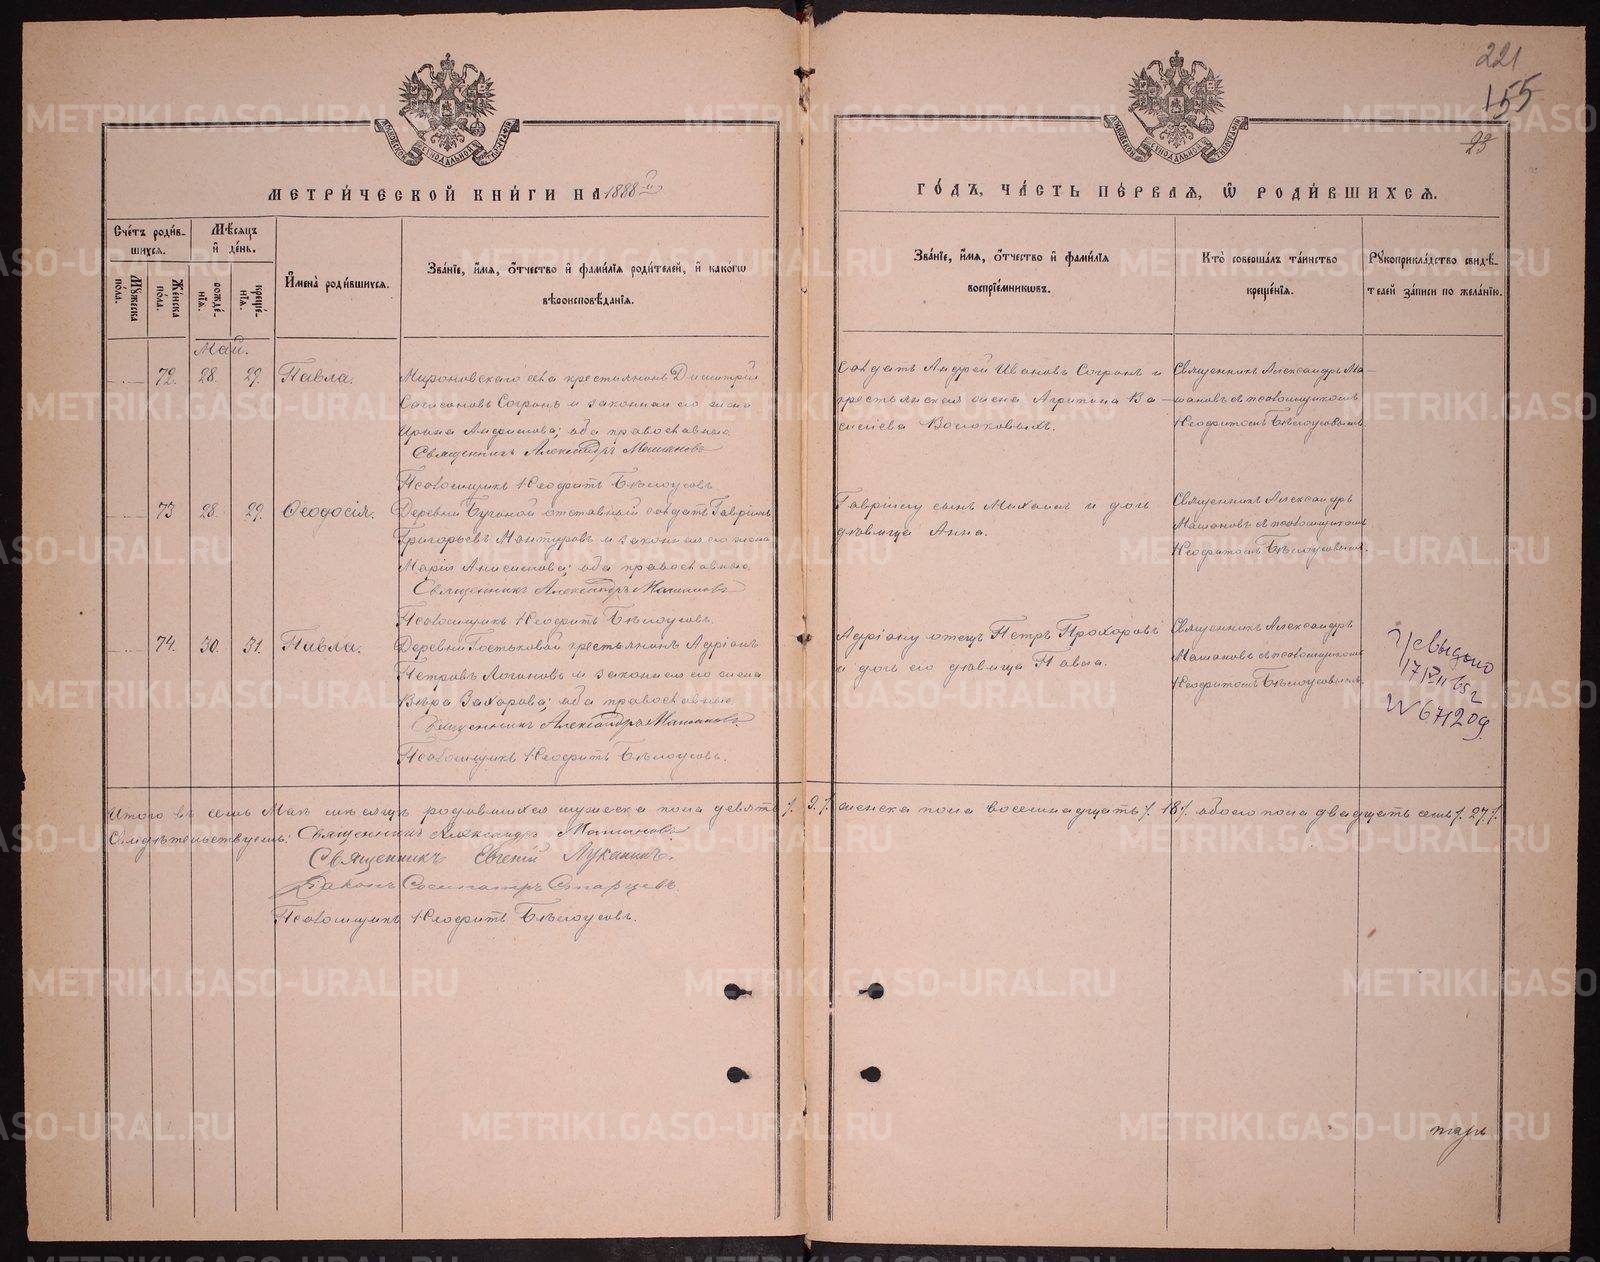 221
155
23
МЕТРИ́ЧЕСКОЙ КНИ́ГИ НА 1888 й
ГО́ДЪ, ЧА́СТЬ ПЕ́РВАЯ, Ѡ РОДИ́ВШИХСЯ.
Сче́тъ роди́в-
шихся.
Мѣ́сяцъ
и де́нь.
Му́жеска по́ла.
Же́нска по́ла.
рожде́-
нїя.
креще́-
нїя.
И҆мена̀ роди́вшихся.
Зва́нїе, и҆́мя, ѻ҆́тчество и҆ фами́лїя роди́телей, и҆ како́гѡ
вѣроисповѣ́данїя.
Зва́нїе, и҆́мя, ѻ҆́тчество и҆ фами́лїя
воспрїе́мникѡвъ.
Кто̀ соверша́лъ та́инство
креще́нїя.
Рꙋкоприкла́дство свидѣ́-
телей за́писи по жела́нїю.
Май.
72. 28. 29. Павла.
Мироновскаго села крестьянинъ Димитрій
Согринъ и законная его жена
Ирина; оба православные.
Священникъ Александръ Машановъ
Псаломщикъ Неофитъ Бѣлоусовъ.
Солдатъ Андрей Ивановъ Согринъ и
крестьянская жена Агрипина Ва-
сильева
Священникъ Александръ Ма-
шановъ съ псаломщикомъ
Неофитомъ Бѣлоусовымъ.
73 28. 29. Ѳеодосія.
Деревни отставный солдатъ Гавріилъ
Григорьевъ Мантуровъ и законная его жена
Марія Анисимова; оба православные.
Священникъ Александръ Машановъ
Псаломщикъ Неофитъ Бѣлоусовъ.
Гавріилу сынъ Михаилъ и дочь
дѣвица Анна.
Священникъ Александръ
Машановъ съ псаломщикомъ
Неофитомъ Бѣлоусовымъ.
74. 30. 31. Павла.
Деревни Гостьковой крестьянинъ Адріанъ
Петровъ Логиновъ и законная его жена
Вѣра Захарова; оба православные.
Священникъ Александръ Машановъ
Псаломщикъ Неофитъ Бѣлоусовъ.
Адріану отецъ Петръ Прохоровъ
и дочь его дѣвица Павла.
Священникъ Александръ
Машановъ съ псаломщикомъ
Неофитомъ Бѣлоусовымъ.
Итого въ семъ Маѣ мѣсяцѣ родившихся мужеска пола девять /. 9. /. женска пола восемнадцать /. 18 /. обоего пола двадцать семь /. 27 /.
Свидѣтельствуемъ: Священникъ Александръ Машановъ
Священникъ Евгеній Луканинъ.
Діаконъ Сосипатръ Старцевъ.
Псаломщикъ Неофитъ Бѣлоусовъ.
METRIKI.GASO-URAL.RU